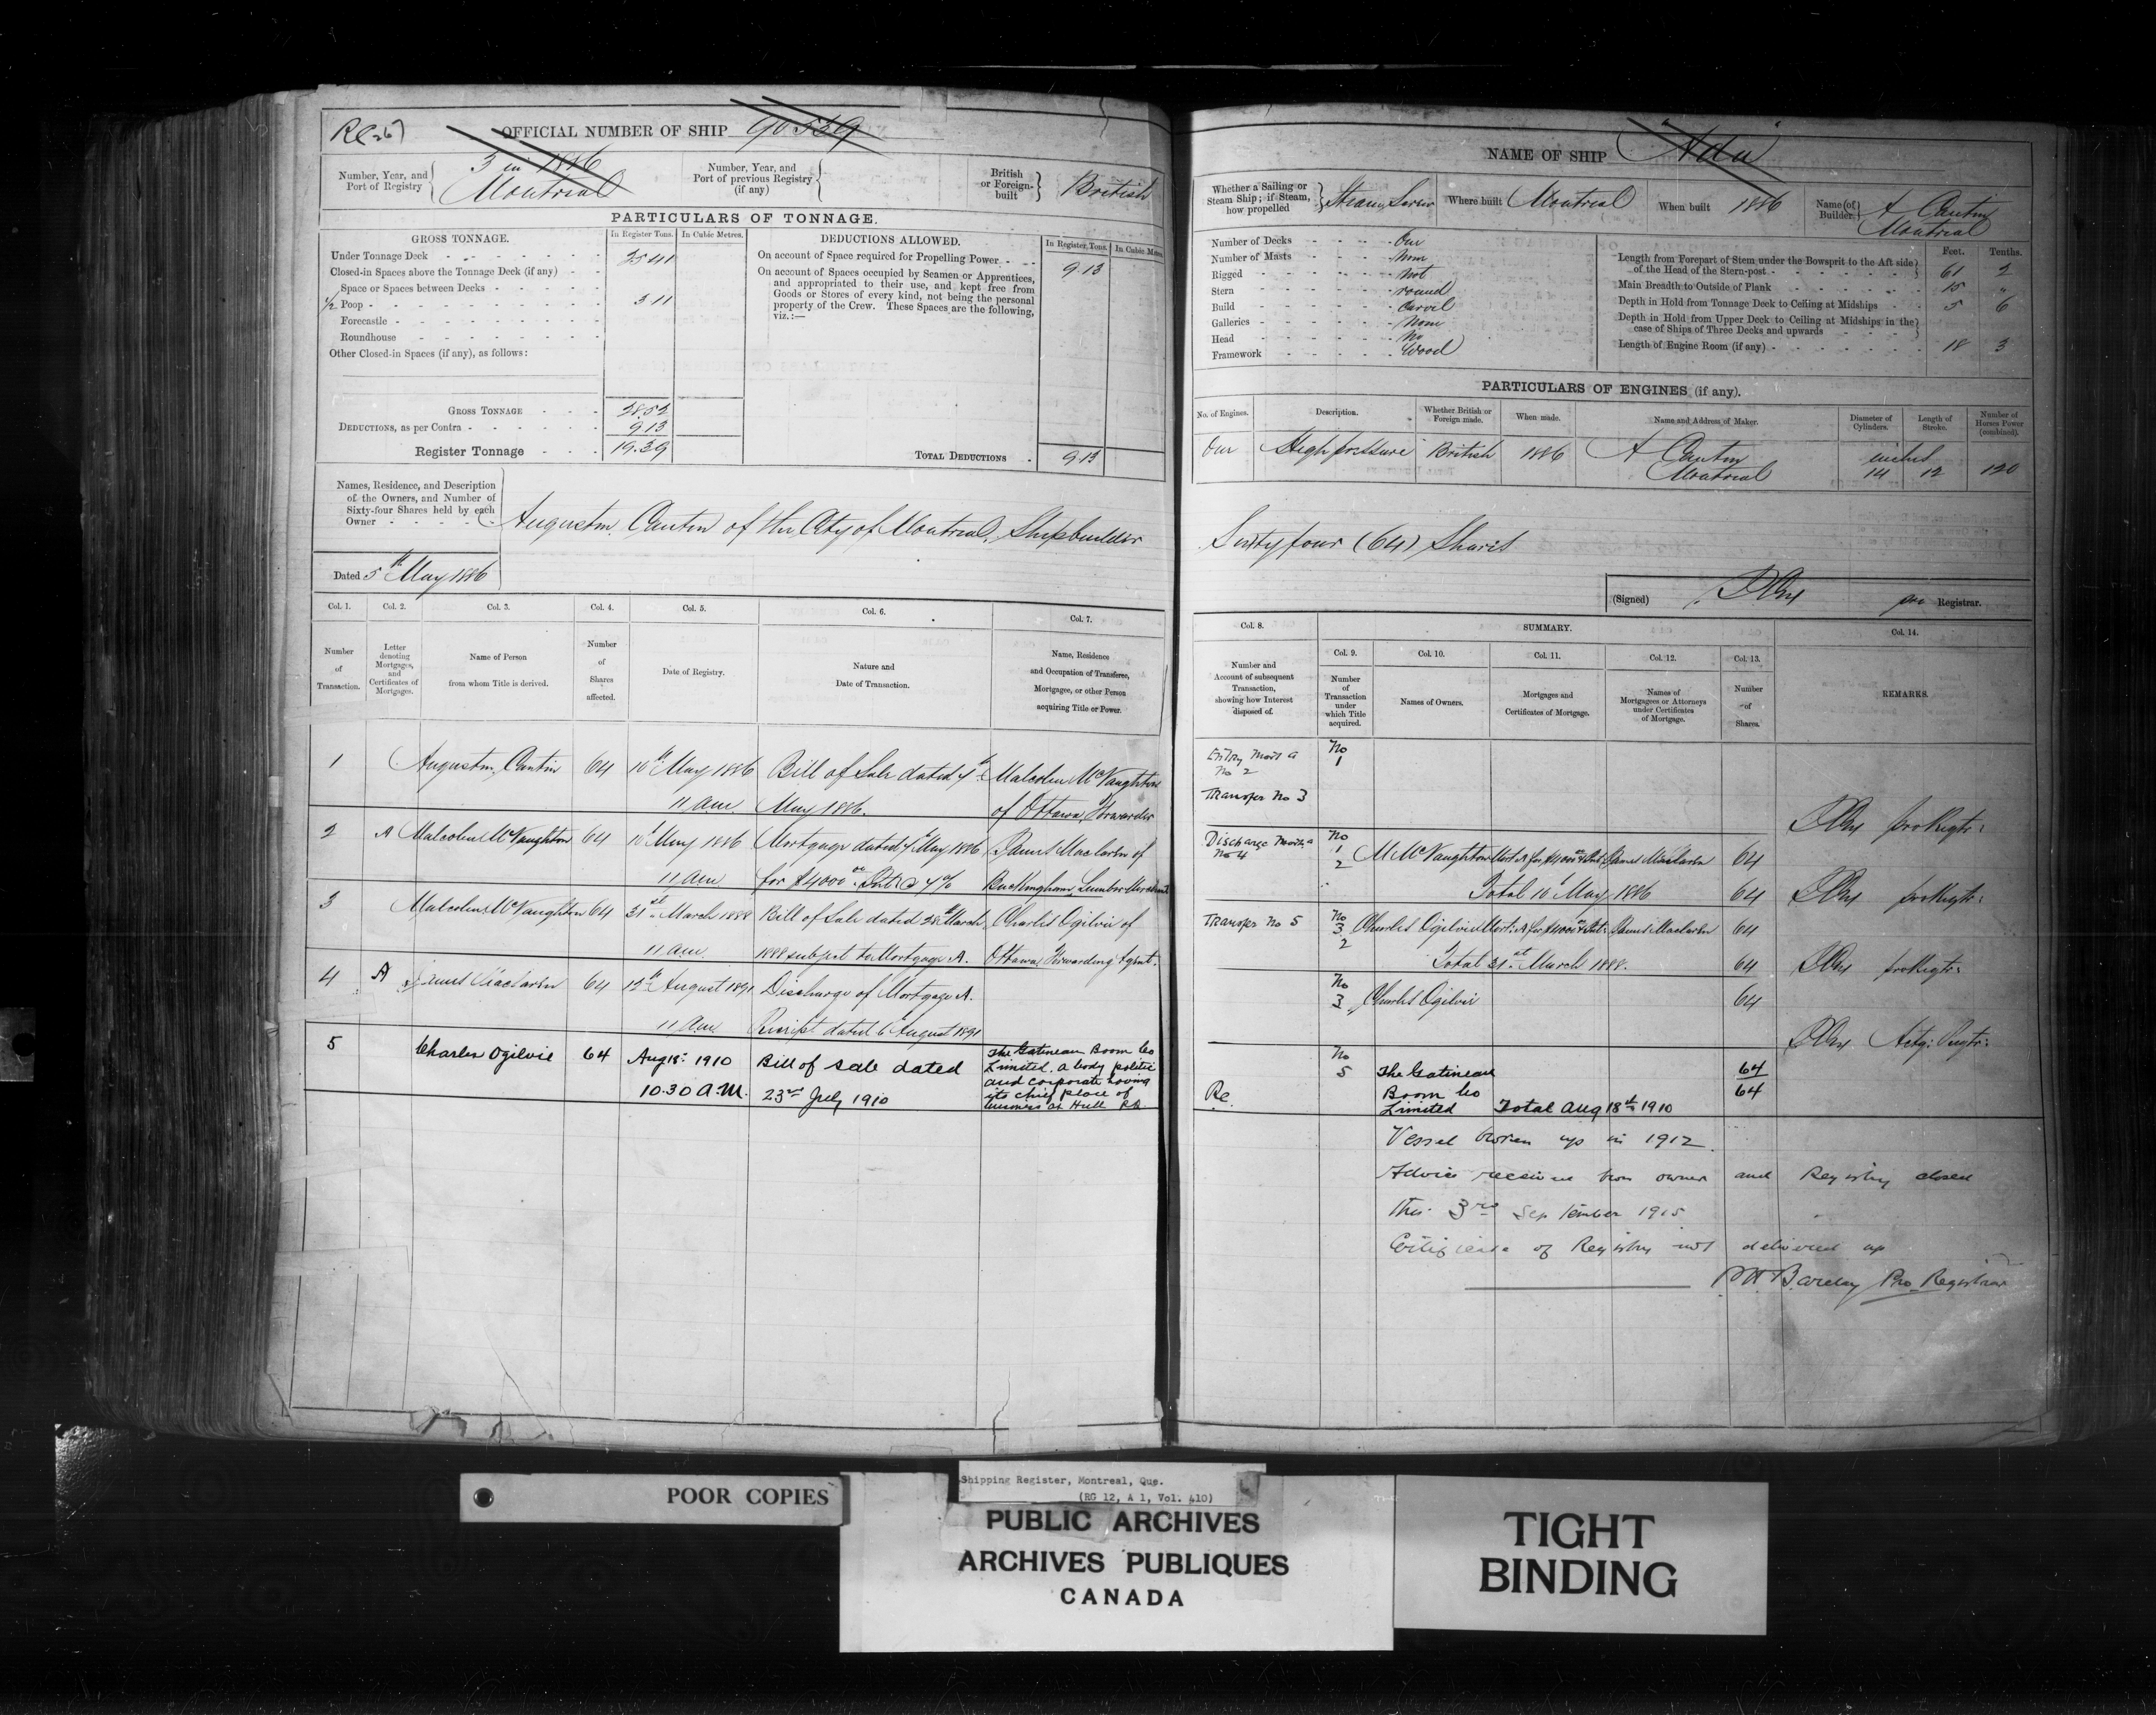 OFFICIAL NUMBER OF SHIP 90559
Number, Year, and
Port of Registry
3 in 1886
Montreal
Number, Year, and
Port of previous Registry
(if any)
British
or Foreign-
built
British
PARTICULARS OF TONNAGE.
GROSS TONNAGE.
In Register Tons. In Cubic Metres.
Under Tonnage Deck 25 41
Closed-in Spaces above the Tonnage Deck (if any)
Space or Spaces between Decks
1/2 Poop 3 11
Forecastle
Roundhouse
Other Closed-in Spaces (if any), as follows:
GROSS TONNAGE 28.52
DEDUCTIONS, as per Contra 9.13
Register Tonnage 19.39
DEDUCTIONS ALLOWED.
In Register Tons. In Cubic Metres.
On account of Space required for Propelling Power 9.13
On account of Spaces occupied by Seamen or Apprentices,
and appropriated to their use, and kept free from
Goods or Stores of every kind, not being the personal
property of the Crew. These Spaces are the following,
viz.:—
TOTAL DEDUCTIONS 9.13
Names, Residence, and Description
of the Owners, and Number of
Sixty-four Shares held by each
Owner
Augustin Cantin of the City of Montreal, Shipbuilder
Dated 5th May 1886
Col. 1. Col. 2. Col. 3. Col. 4. Col. 5. Col. 6. Col. 7.
Number
of
Transaction.
Letter
denoting
Mortgages,
and
Certificates of
Mortgages.
Name of Person
from whom Title is derived.
Number
of
Shares
affected.
Date of Registry.
Nature and
Date of Transaction.
Name, Residence
and Occupation of Transferee,
Mortgagee, or other Person
acquiring Title or Power.
1 Augustin Cantin 64 10th May 1886 Bill of Sale dated 7th Malcolm McNaughton
11 a.m. May 1886. of Ottawa, Forwarder
2 A Malcolm McNaughton 64 10th May 1886 Mortgage dated 7th May 1886 James Maclaren of
11 am for $4000 Int @ 7% Buckingham, Lumber Merchant
3 Malcolm McNaughton 64 31st March 1888 Bill of Sale dated 28th March Charles Ogilvie of
11 am. 1888 subject to Mortgage A. Ottawa, Forwarding Agent.
4 A James Maclaren 64 12th August 1891 Discharge of Mortgage A.
11 am. Receipt dated 6th August 1891
5 Charles Ogilvie 64 Aug 18th 1910 Bill of sale dated
10.30 A.M. 23rd July 1910
The Gatineau Boom Co
Limited. a body politic
and corporate having
its chief place of
business at Hull PQ
NAME OF SHIP "Ada"
Whether a Sailing or
Steam Ship; if Steam,
how propelled
Steam, Screw
Where built Montreal
When built 1886
Name (of
Builder.
A Cantin
Montreal
Number of Decks One
Number of Masts None
Rigged Not
Stern round
Build Carvel
Galleries None
Head No
Framework Wood
Feet. Tenths.
Length from Forepart of Stem under the Bowsprit to the Aft side
of the Head of the Stern-post 61 2
Main Breadth to Outside of Plank 15 "
Depth in Hold from Tonnage Deck to Ceiling at Midships 5 6
Depth in Hold from Upper Deck to Ceiling at Midships in the
case of Ships of Three Decks and upwards
Length of Engine Room (if any) 18 3
PARTICULARS OF ENGINES (if any).
No. of Engines. Description. Whether British or
Foreign made. When made. Name and Address of Maker. Diameter of
Cylinders. Length of
Stroke. Number of
Horses Power
(combined).
One High pressure British 1886 A Cantin
Montreal
inches
14 12 120
Sixty four (64) Shares
(Signed) pro Registrar.
Col. 8. SUMMARY. Col. 14.
Col. 9. Col. 10. Col. 11. Col. 12. Col. 13.
Number and
Account of subsequent
Transaction,
showing how Interest
disposed of.
Number
of
Transaction
under
which Title
acquired.
Names of Owners.
Mortgages and
Certificates of Mortgage.
Names of
Mortgagees or Attorneys
under Certificates
of Mortgage.
Number
of
Shares.
REMARKS.
Entry Mort A
No 2
No
1
Transfer No 3
pro Regtr:
Discharge Mortg. A
No 4
No
1
2
M McNaughton Mort: A for $4000 & Int: James Maclaren 64
Total 10th May 1886 64
pro Regtr:
Transfer No 5
No
3
2
Charles Ogilvie Mort: A for $4000 & Int: James Maclaren 64
Total 31st March 1888. 64
pro Regtr:
No
3 Charles Ogilvie 64
Actg: Regtr:
No
5 The Gatineau 64
Boom Co 64
Limited Total Aug 18th 1910
Re.
Vessel broken up in 1912.
Advice received from owner and Registry closed
this 3rd September 1915.
Certificate of Registry not delivered up
Barclay Pro Registrar
POOR COPIES
Shipping Register, Montreal, Que.
(RG 12, A 1, Vol. 410)
PUBLIC ARCHIVES
ARCHIVES PUBLIQUES
CANADA
TIGHT
BINDING